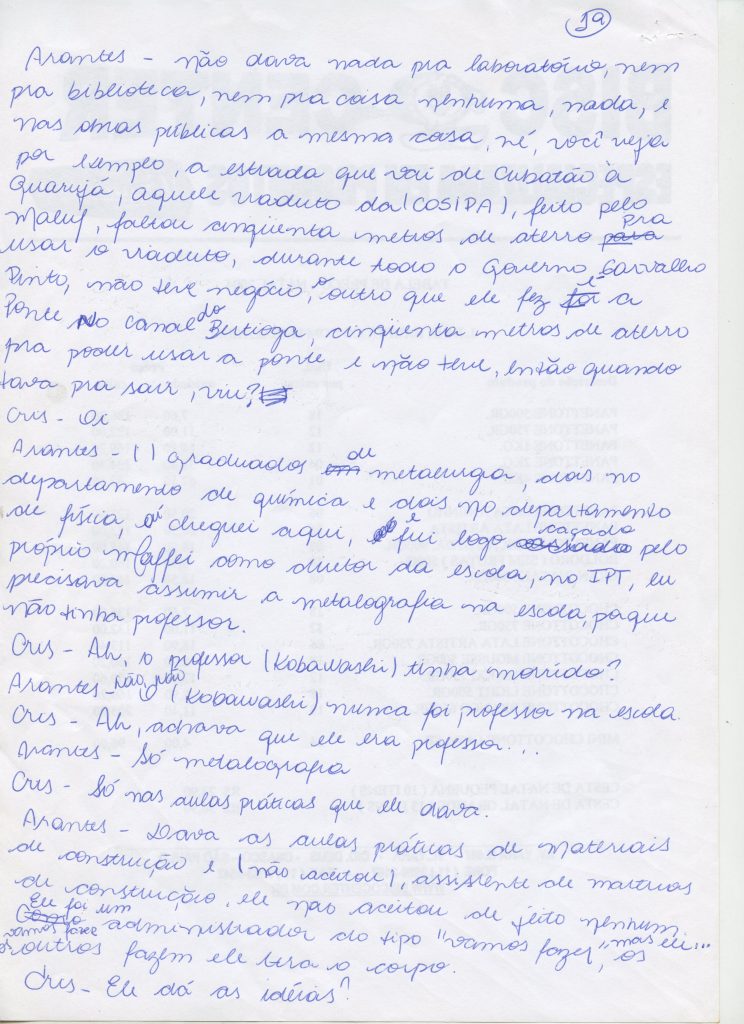 19
Arantes - não dava nada pra laboratório, nem
pra biblioteca, nem pra coisa nenhuma, nada, e
nas obras públicas a mesma coisa, né, você veja
por exemplo, a estrada que vai de Cubatão à
Guarujá, aquele viaduto da (COSIPA), feito pelo
Maluf, faltou cinqüenta metros de aterro para pra
usar o viaduto, durante todo o Governo Carvalho
Pinto, não teve negócio, o outro que ele fez foi é a
Ponte no canal do Bertioga, cinqüenta metros de aterro
pra poder usar a ponte e não teve, então quando
tava pra sair, viu?
Cris - Oi
Arantes - ( ) graduados em de metalurgia, dois no
departamento de química e dois no departamento
de física, aí cheguei aqui, e fui logo caçado pelo
próprio Maffei como diretor da escola, no IPT, eu
precisava assumir a metalografia na escola, porque
não tinha professor.
Cris - Ah, o professor (Kobawashi) tinha morrido?
Arantes - não não o (Kobawashi) nunca foi professor na escola.
Cris - Ah, achava que ele era professor...
Arantes - Só metalografia
Cris - Só nas aulas práticas que ele dava.
Arantes - Dava as aulas práticas de materiais
de construção e (não aceitou), assistente de
de construção, ele não aceitou de jeito nenhum.
Ele foi um
Como administrador do tipo "vamos fazer", mas ele...
vamos fazer
os outros fazem ele tira o corpo.
Cris - Ele dá as idéias?